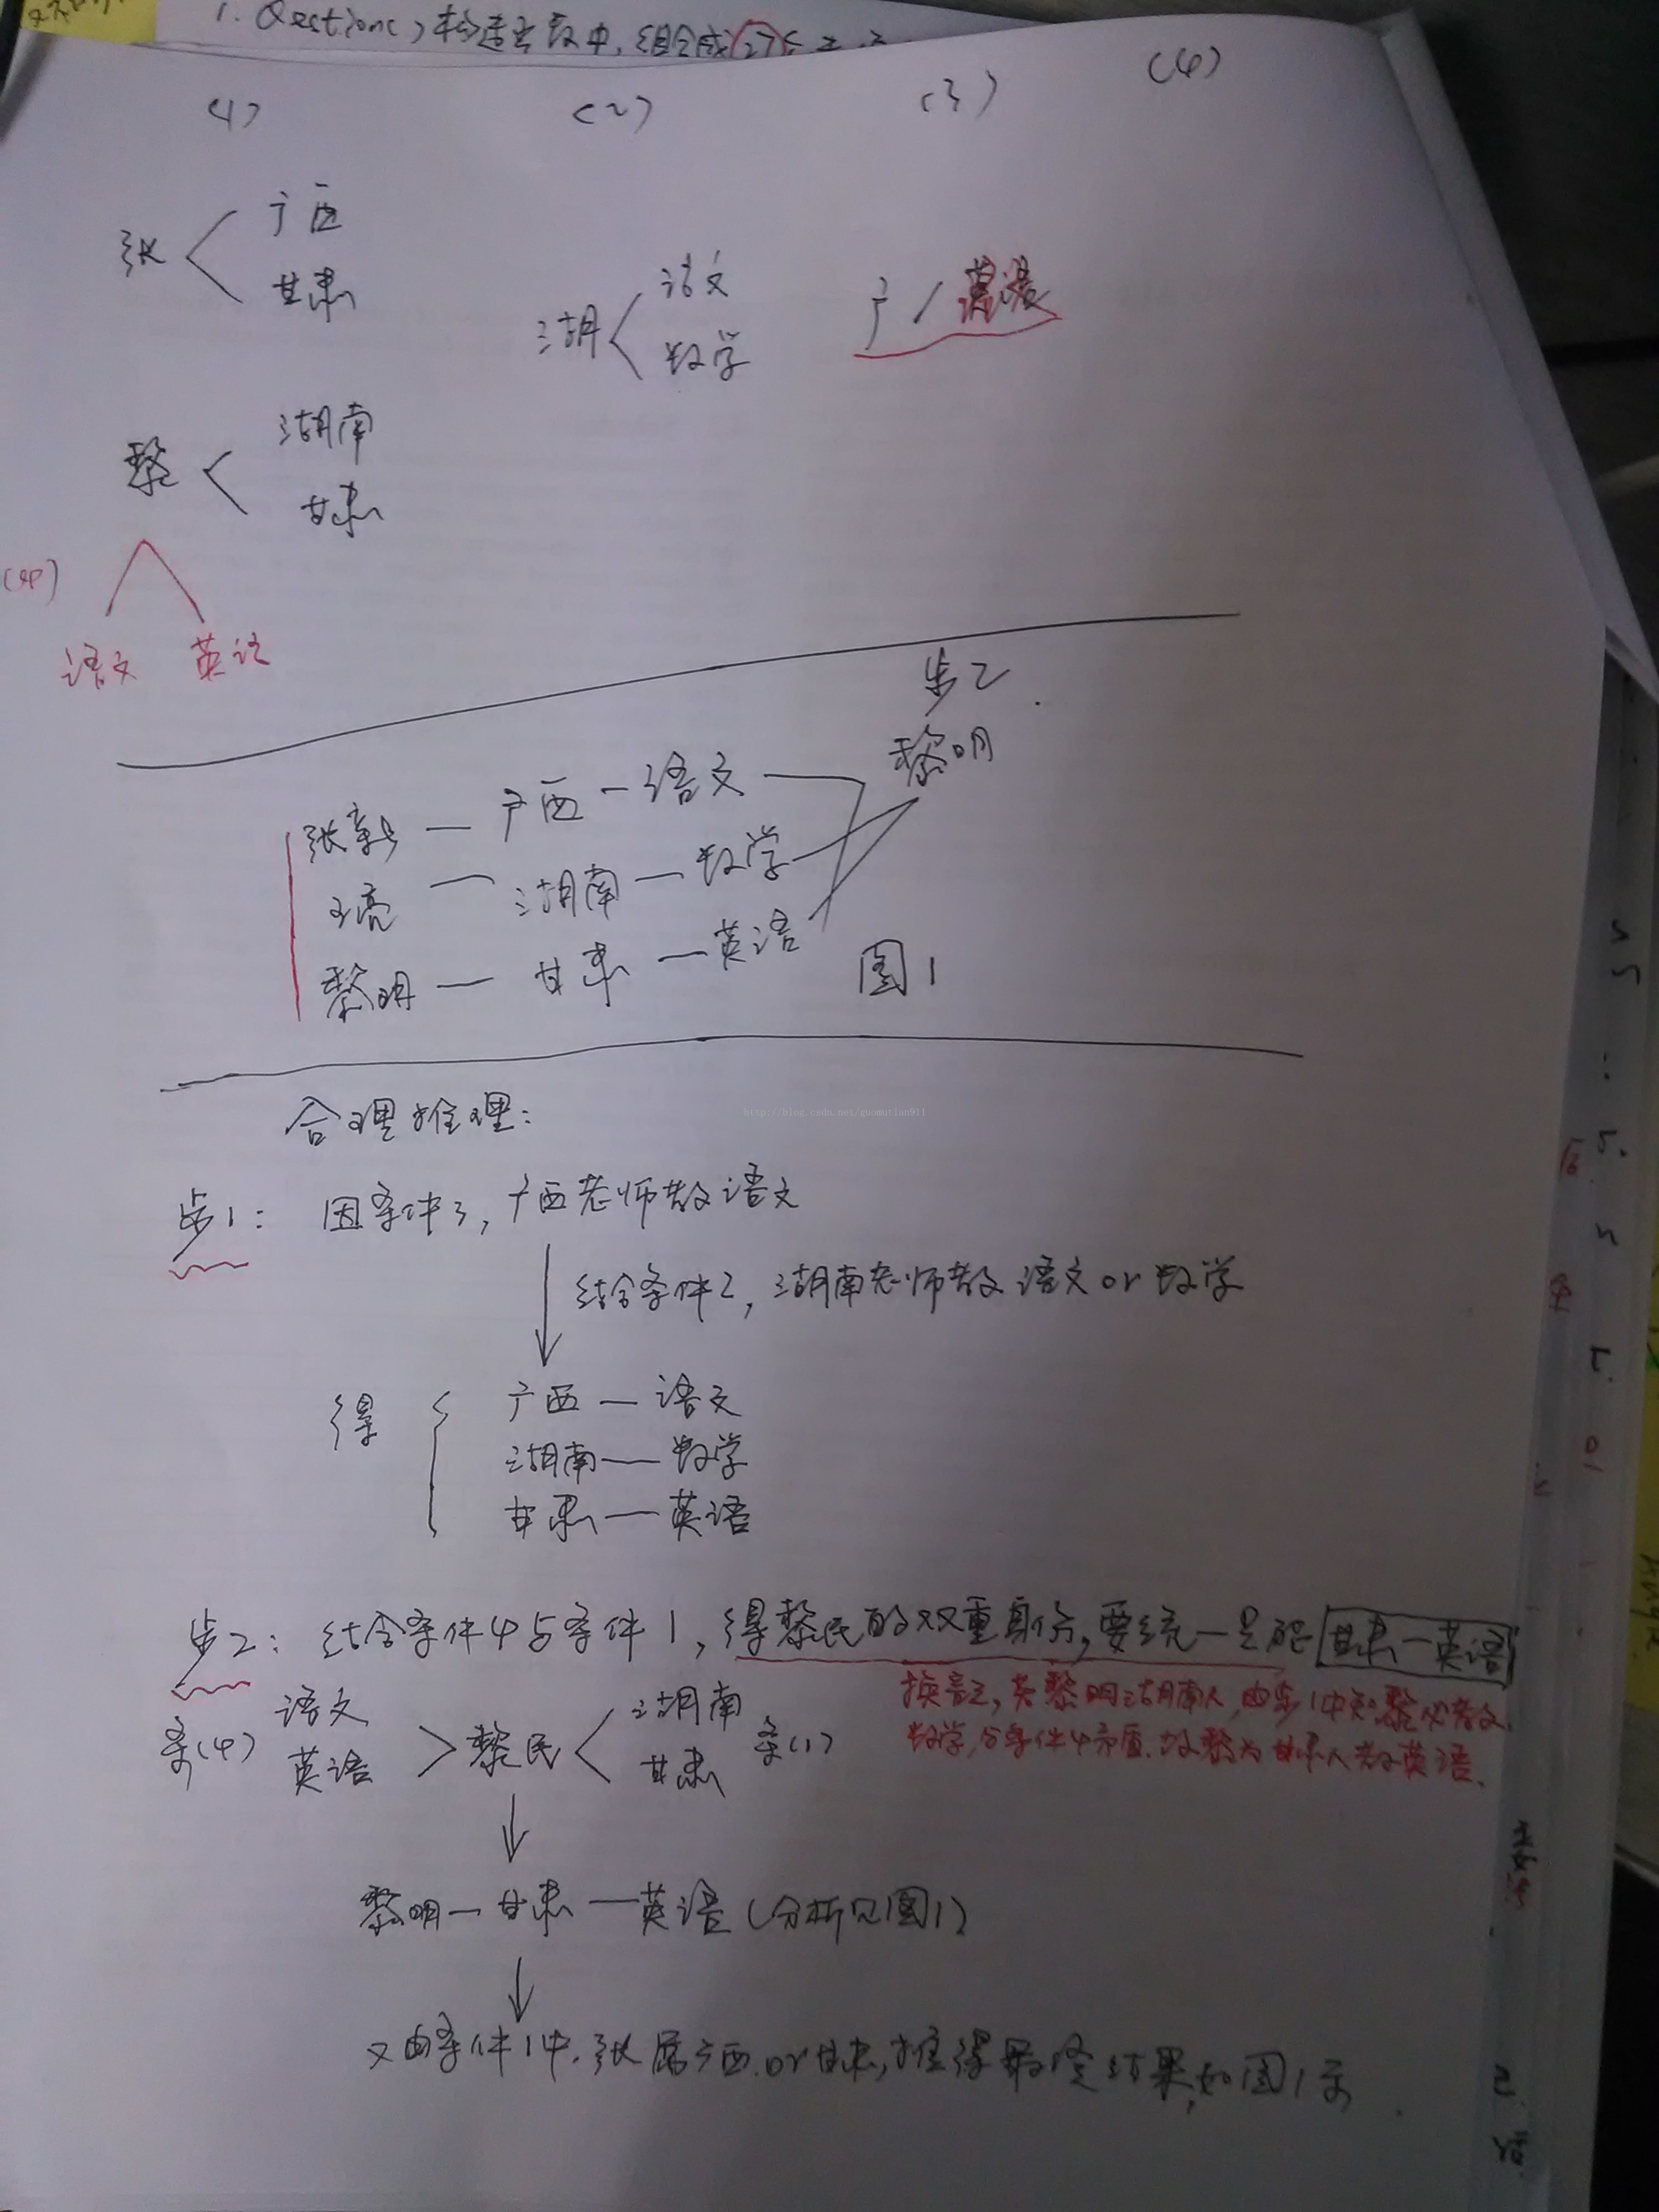 1. Question()构造函数中,组合成
(1) (2) (3) (4)
张 广西
甘肃
湖 语文
数学
广 /
黎 湖南
甘肃
(4)
语文 英语
步2
黎明
张 — 广西 — 语文
王亮 — 湖南 — 数学
黎明 — 甘肃 — 英语
图1
http://blog.csdn.net/guomutian911
合理推理:
步1: 因条件3, 广西老师教语文
结合条件2, 湖南老师教语文or数学
得 广西 — 语文
湖南 — 数学
甘肃 — 英语
步2: 结合条件4与条件1, 得黎民的双重身份, 要统一只能 甘肃一英语
换言之, 若黎明湖南人, 由步1中知黎必教
数学, 与条件4矛盾. 故黎为甘肃人教英语.
条(4) 语文
英语 > 黎民 < 湖南
甘肃 条(1)
黎明 — 甘肃 — 英语 (分析见图1)
又由条件1中, 张属广西or甘肃, 推得最终结果, 如图1示